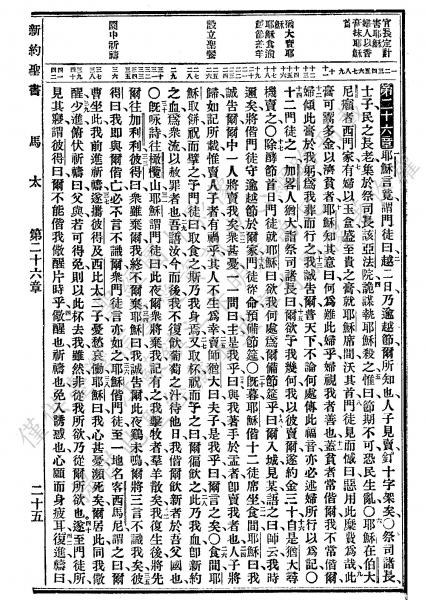 官長定計害耶穌
婦人以香膏抹耶穌首
猶大賣耶穌
耶穌食逾越節筵
設立聖餐
園中祈禱
第二十六章 耶穌言竟謂門徒曰越二日乃逾越節爾所知也人子見賣釘十字架矣〇祭司諸長
士子民之長老集於祭司長該亞法院詭謀執耶穌殺之惟曰節期不可恐民生亂〇耶穌在伯大
尼癩者西門家有婦以玉盒盛至貴之膏就耶穌席間沃其首門徒見而慍曰惡用此糜費爲哉此
膏可鬻多金以濟貧者耶穌知其意曰何爲難此婦乎婦視我者善也蓋貧者常偕爾我不常偕爾
婦傾此膏於我躬爲我葬而行之我誠告爾普天下不論何處傳此福音亦必述婦所行以爲記〇
十二門徒之一加畧人猶大詣祭司諸長曰爾欲予我幾何我以彼賣爾遂約金三十自是猶大尋
機賣之〇除酵節首日門徒就耶穌曰欲我何處爲爾備節筵乎曰爾入城見某語之曰師云我時
邇矣將偕門徒守逾越節於爾家門徒從命預備節筵〇既暮耶穌偕十二徒席坐食間耶穌曰我
誠告爾爾中一人將賣我矣衆甚憂一一問曰主是我乎曰與我著手於盂者卽賣我者也人子將
逝如記所載惟賣人子者有禍乎其人不生爲幸賣師猶大曰夫子是我乎曰爾言之矣〇食間耶
穌取餅祝而擘之予門徒曰取食之斯乃我身焉又取杯祝而予之曰爾偕飲之此乃我血卽新約
之血爲衆流以赦罪者也吾語汝今而後我不復飲葡萄之汁待他日我偕爾飲新者於吾父國也
〇既咏詩往橄欖山耶穌謂門徒曰此夜爾衆將棄我記有之我擊牧者羣羊散矣我復生後將先
爾往加利利彼得曰衆雖棄爾我終不爾棄耶穌曰我誠告爾此夜鷄未鳴爾將三言不識我矣彼
得曰我卽與爾偕亡必不言不識爾衆門徒言亦如之耶穌偕門徒至一地名客西馬尼謂之曰爾
曹坐此我前進祈禱遂攜彼得及西比太二子憂愁哀慟耶穌曰我心甚憂瀕死矣爾居此同我儆
醒少進俯伏祈禱曰父與若可得免則以此杯去我雖然非從我所欲乃從爾所欲也遂至門徒所
見其寢謂彼得曰爾不能偕我儆醒片時乎儆醒也祈禱也免入誘惑也心願而身疲耳復進禱曰
新約聖書 馬太 第二十六章 二十五